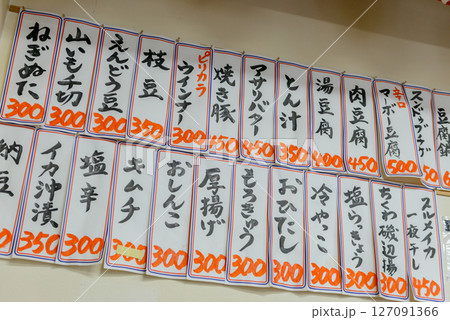 ねぎぬた
300
山いも千切
300
えんどう豆
300
枝豆
350
ピリカラ
ウインナー
300
焼き豚
450
アサリバター
450
とん汁
350
湯豆腐
400
肉豆腐
450
辛口
マーボー豆腐
500
スンドゥブチゲ
500
豆腐
納豆
イカ沖漬
350
塩辛
300
キムチ
300
おしんこ
300
厚揚げ
300
もろきゅう
300
おひたし
300
冷やっこ
300
塩らっきょう
300
ちくわ磯辺揚
300
スルメイカ
一夜干し
450
127091366